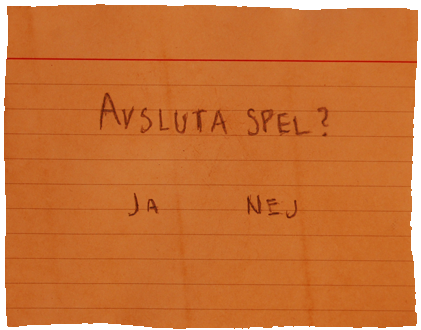 AVSLUTA SPEL?
JA NEJ